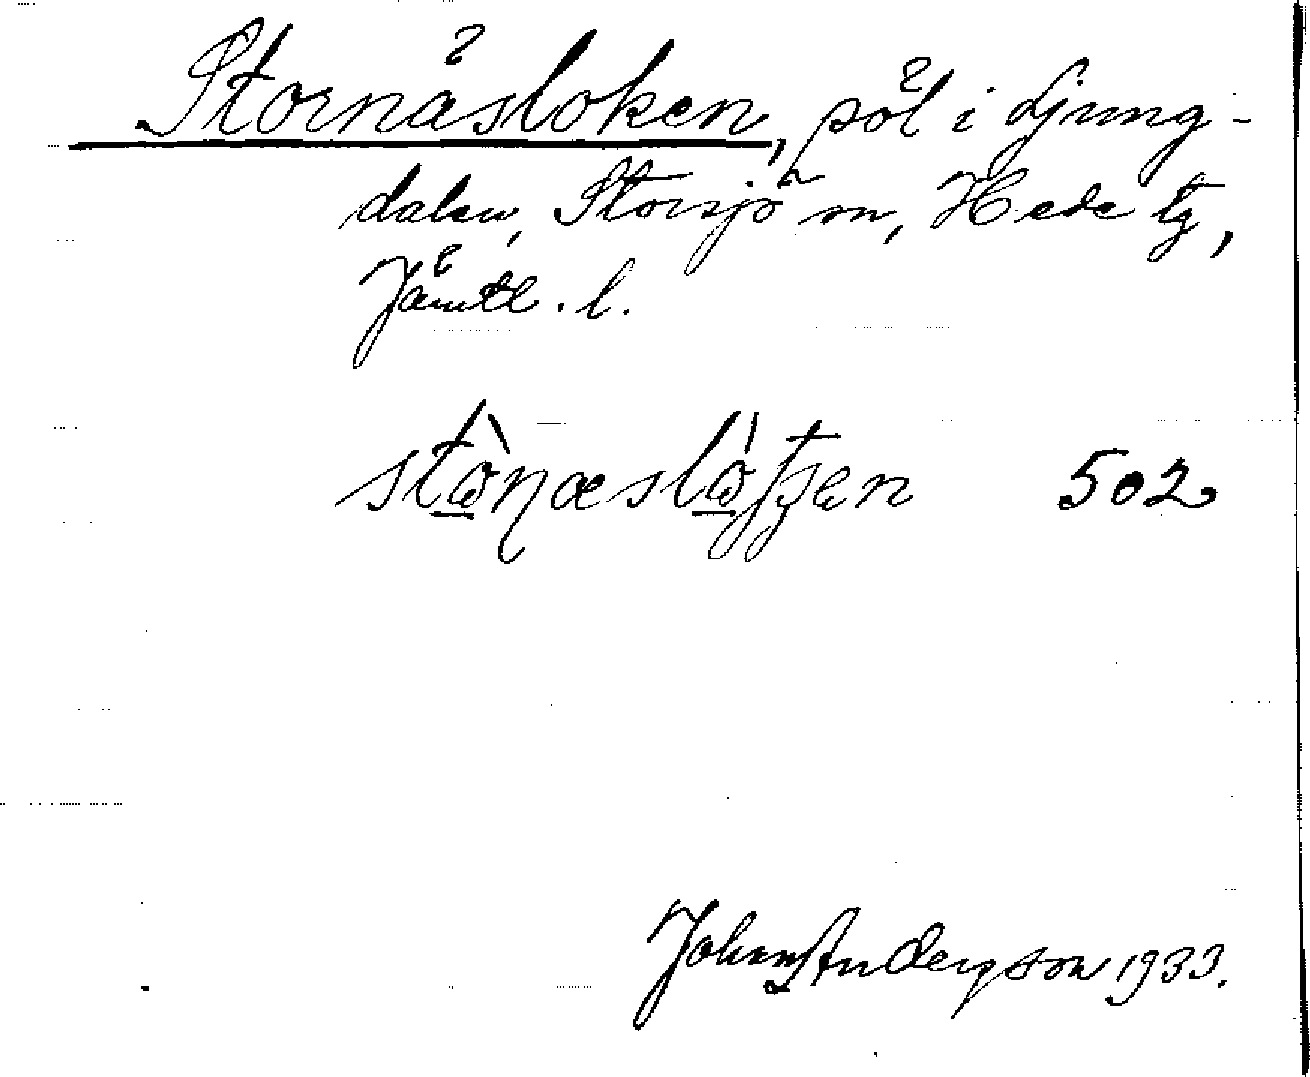 Stornäsloken, pöl i Ljung-
dalen, Storsjö sn, Hede tg,
Jämtl. l.
502
Johan Anderson 1933.